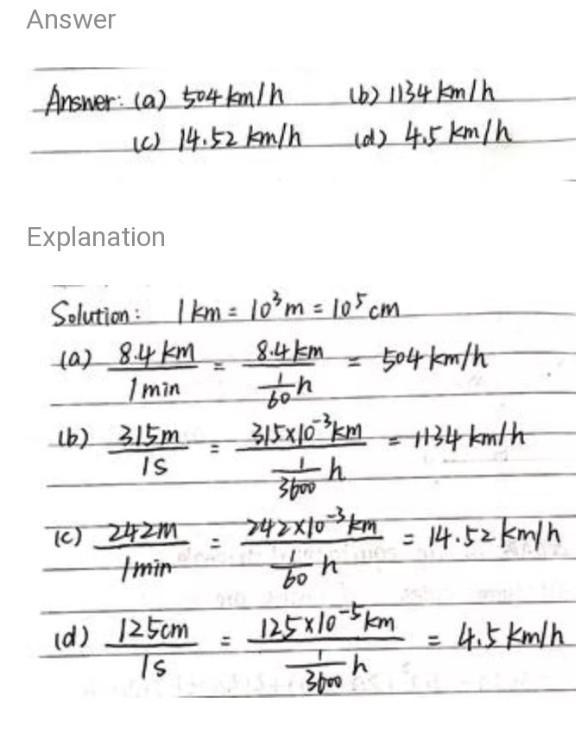 Answer
Answer: (a) 504 km/h (b) 1134 km/h
(c) 14.52 km/h (d) 4.5 km/h
Explanation
Solution: 1 km = 10³ m = 10⁵ cm
(a) 8.4 km / 1 min = 8.4 km / 1/60 h = 504 km/h
(b) 315m / 1s = 315×10⁻³ km / 1/3600 h = 1134 km/h
(c) 242m / 1min = 242×10⁻³ km / 1/60 h = 14.52 km/h
(d) 125cm / 1s = 125×10⁻⁵ km / 1/3600 h = 4.5 km/h